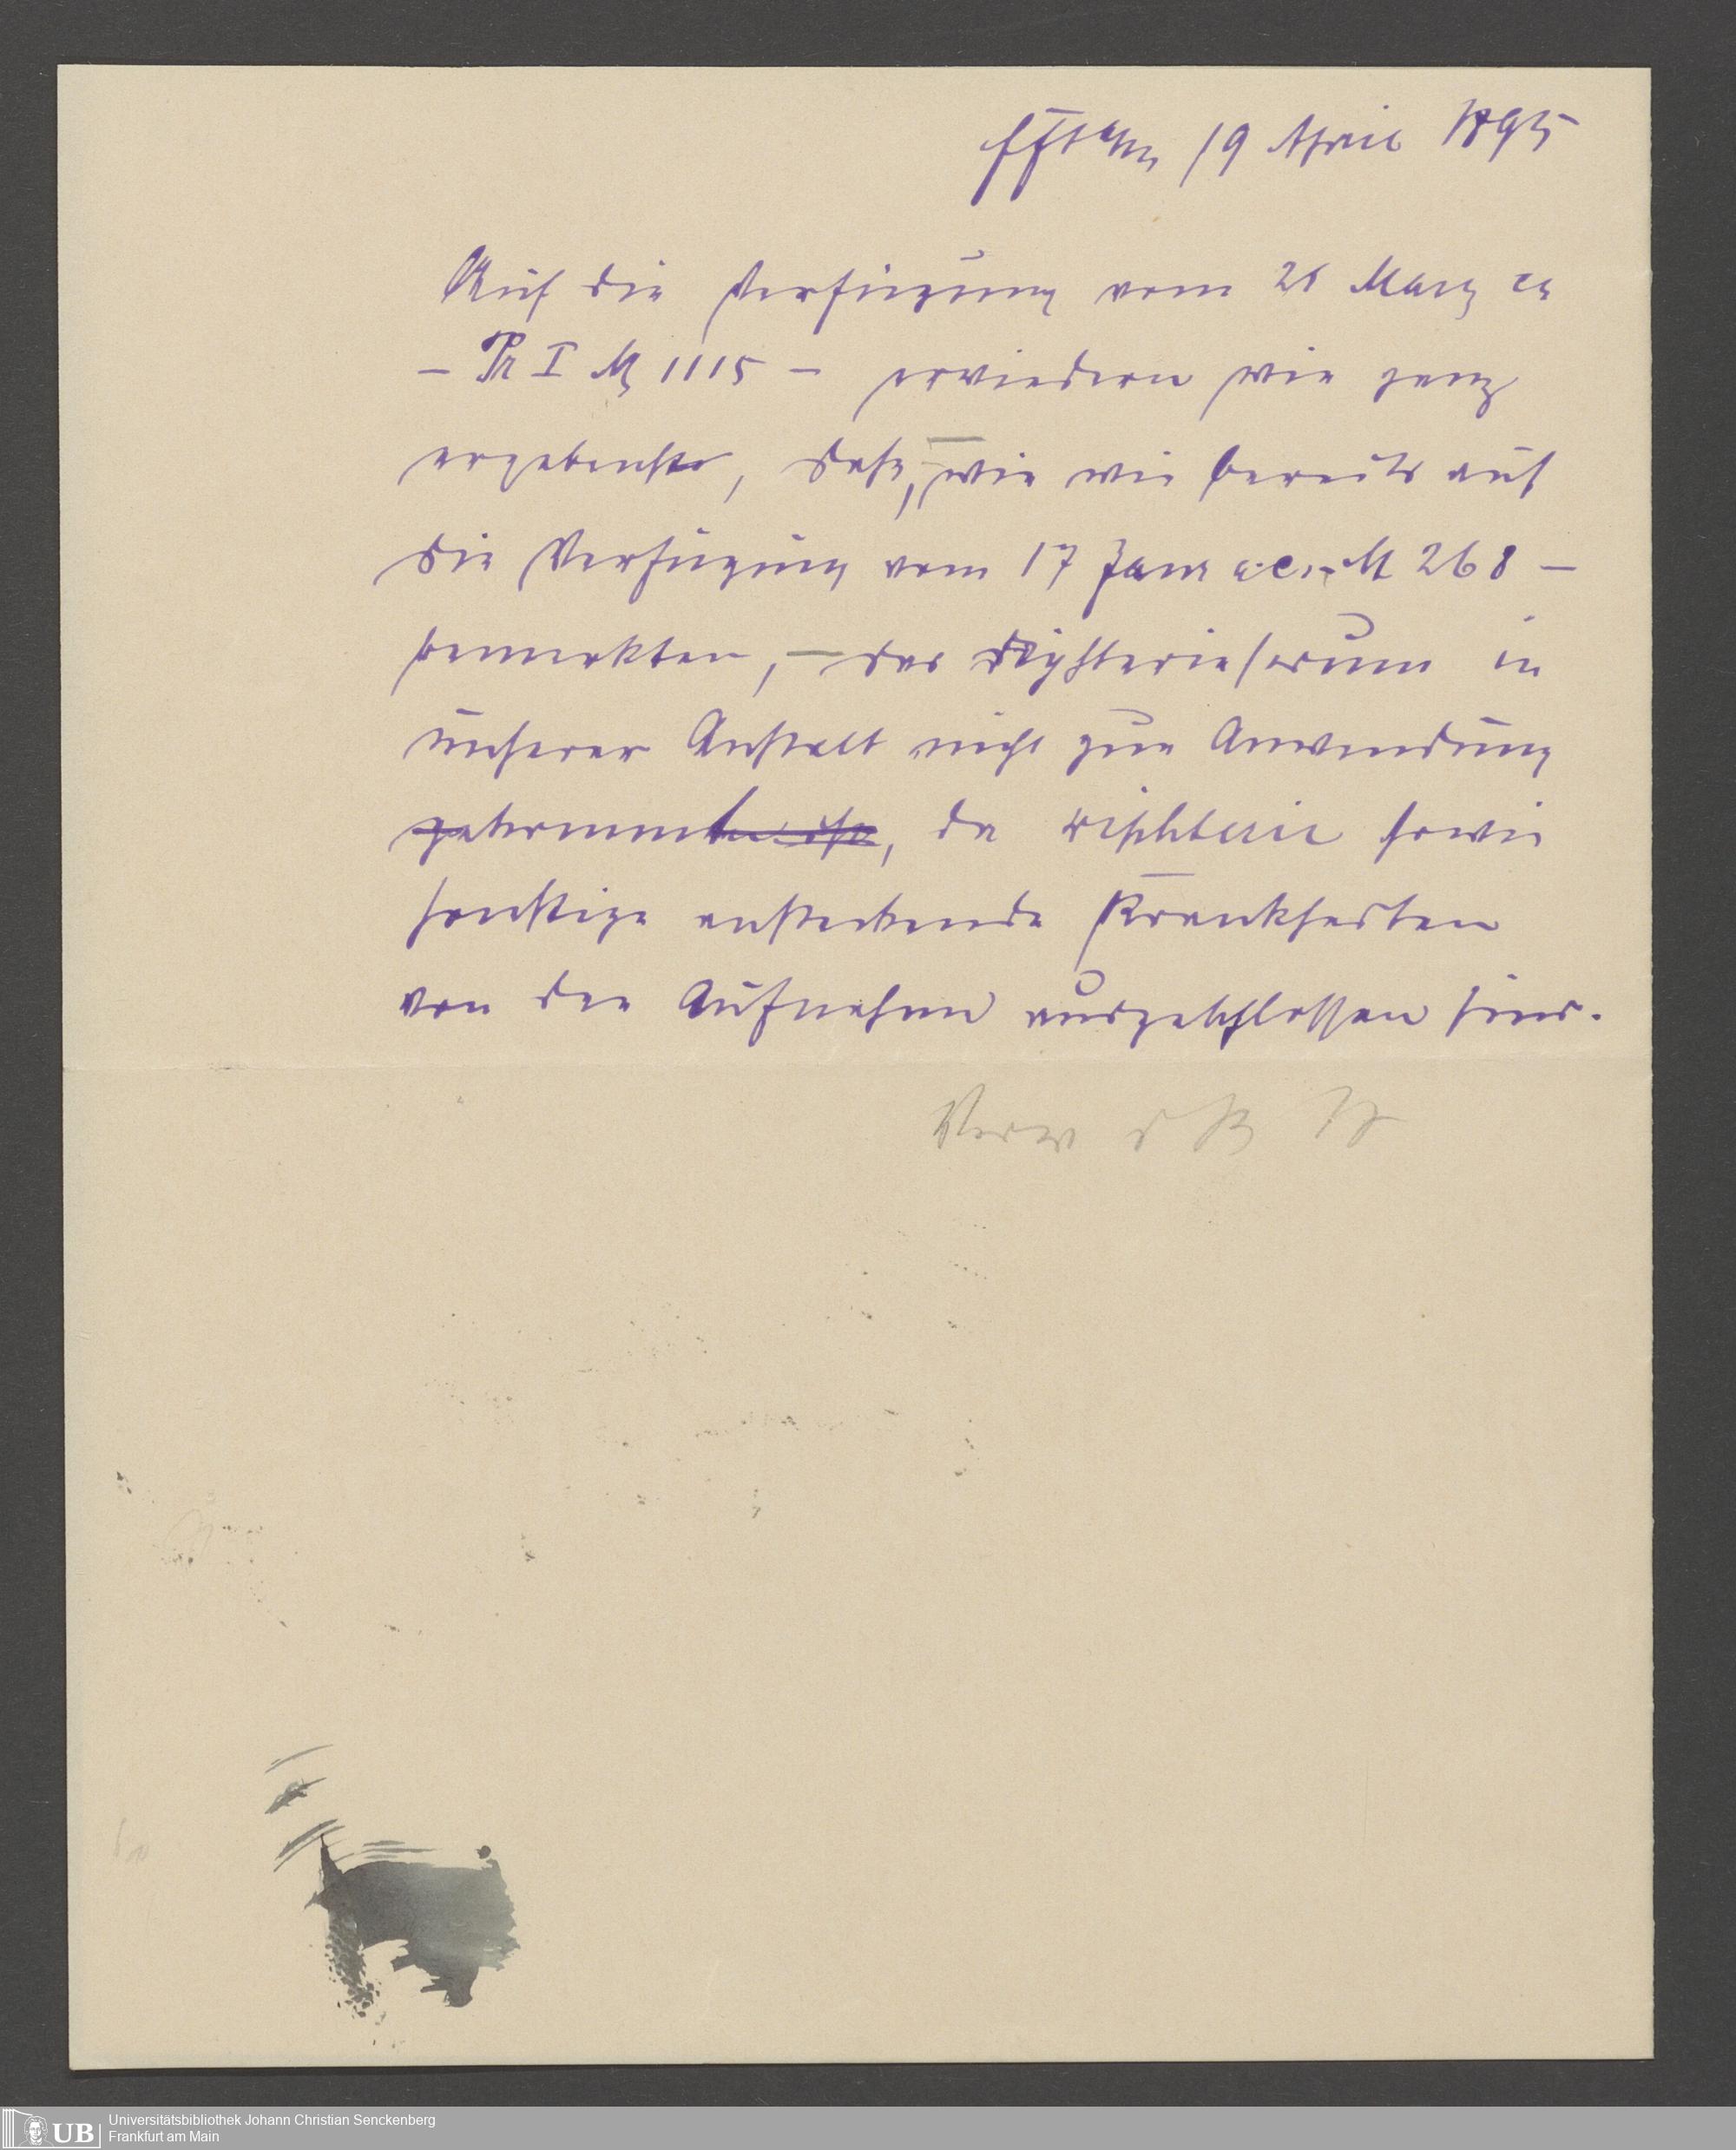 Ffta/m 19 April 1895
Auf die Verfügung vom 21 März ca
– Pr I № 1115 – erwiedern wir ganz
ergebenst, daß, – wie wir bereits auf
die Verfügung vom 17 Janr a.c. – № 268 –
bemerkten, – das Diphterieserum in
unserer Anstalt nicht zur Anwendung
gekommen ist, da Diphterie sowie
sonstige ansteckende Krankheiten
von der Aufnahme ausgeschlossen sind.
Verw d
UB
Universitätsbibliothek Johann Christian Senckenberg
Frankfurt am Main